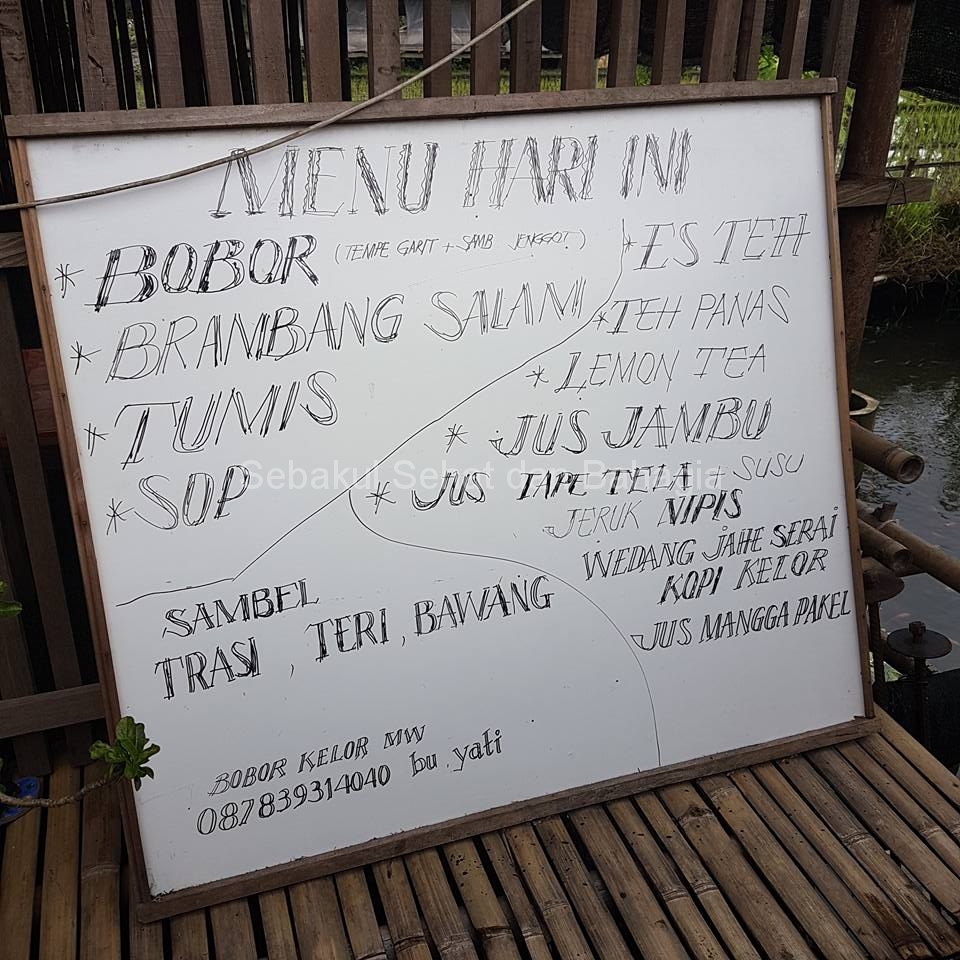 MENU HARI INI
* BOBOR (TEMPE GARIT + SAMB JENGGOT)
* BRAMBANG SALAM
* TUMIS
* SOP
* ES TEH
* TEH PANAS
* LEMON TEA
* JUS JAMBU
* JUS TAPE TELA + SUSU
JERUK NIPIS
WEDANG JAHE SERAI
KOPI KELOR
JUS MANGGA PAKEL
SAMBEL
TRASI, TERI, BAWANG
BOBOR KELOR MW
087839314040 bu yati
Sebakul Sehat dan Bahagia